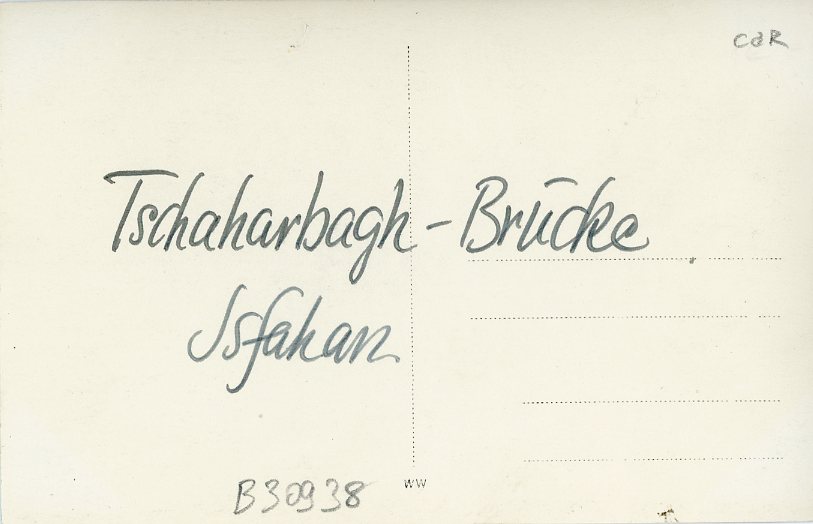 CdR
Tschaharbagh-Brücke
Isfahan
B30938
WW